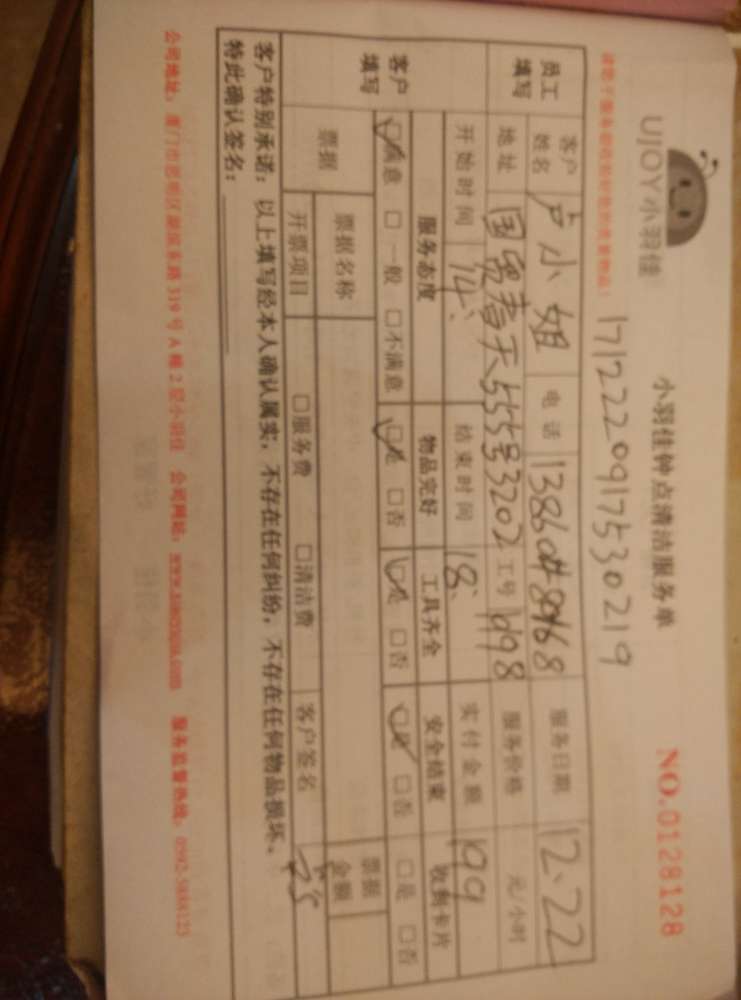 UJOY小羽佳
小羽佳钟点清洁服务单
NO.0128128
1712220917530219
员工填写
客户姓名 卢小姐 电话 服务日期 12、22
地址 国贸春天555号3202 工号 1198 服务价格 元/小时
开始时间 14、 结束时间 18、 实付金额 199
客户填写
服务态度 物品完好 工具齐全 安全结束 收到卡片
☑满意 □一般 □不满意 ☑是 □否 ☑是 □否 ☑是 □否 □是 □否
票据 票据名称 票据金额
开票项目 □服务费 □清洁费 客户签名
客户特别承诺：以上填写经本人确认属实，不存在任何纠纷，不存在任何物品损坏、
特此确认签名：
公司地址：厦门市思明区 319号A幢2层小羽佳 公司网站： 服务监督热线：0592-5888123